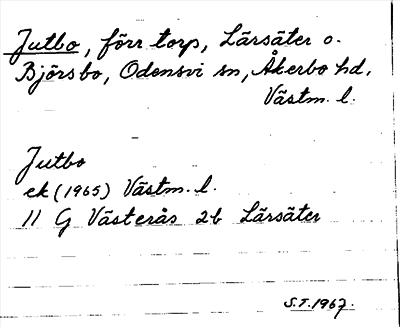 Jutbo, förr torp, Lärsäter o.
Björsbo, Odensvi sn, Åkerbo hd,
Västm. l.
Jutbo
ek (1965) Västm. l.
11 G Västerås 2b Lärsäter
S.T. 1967.